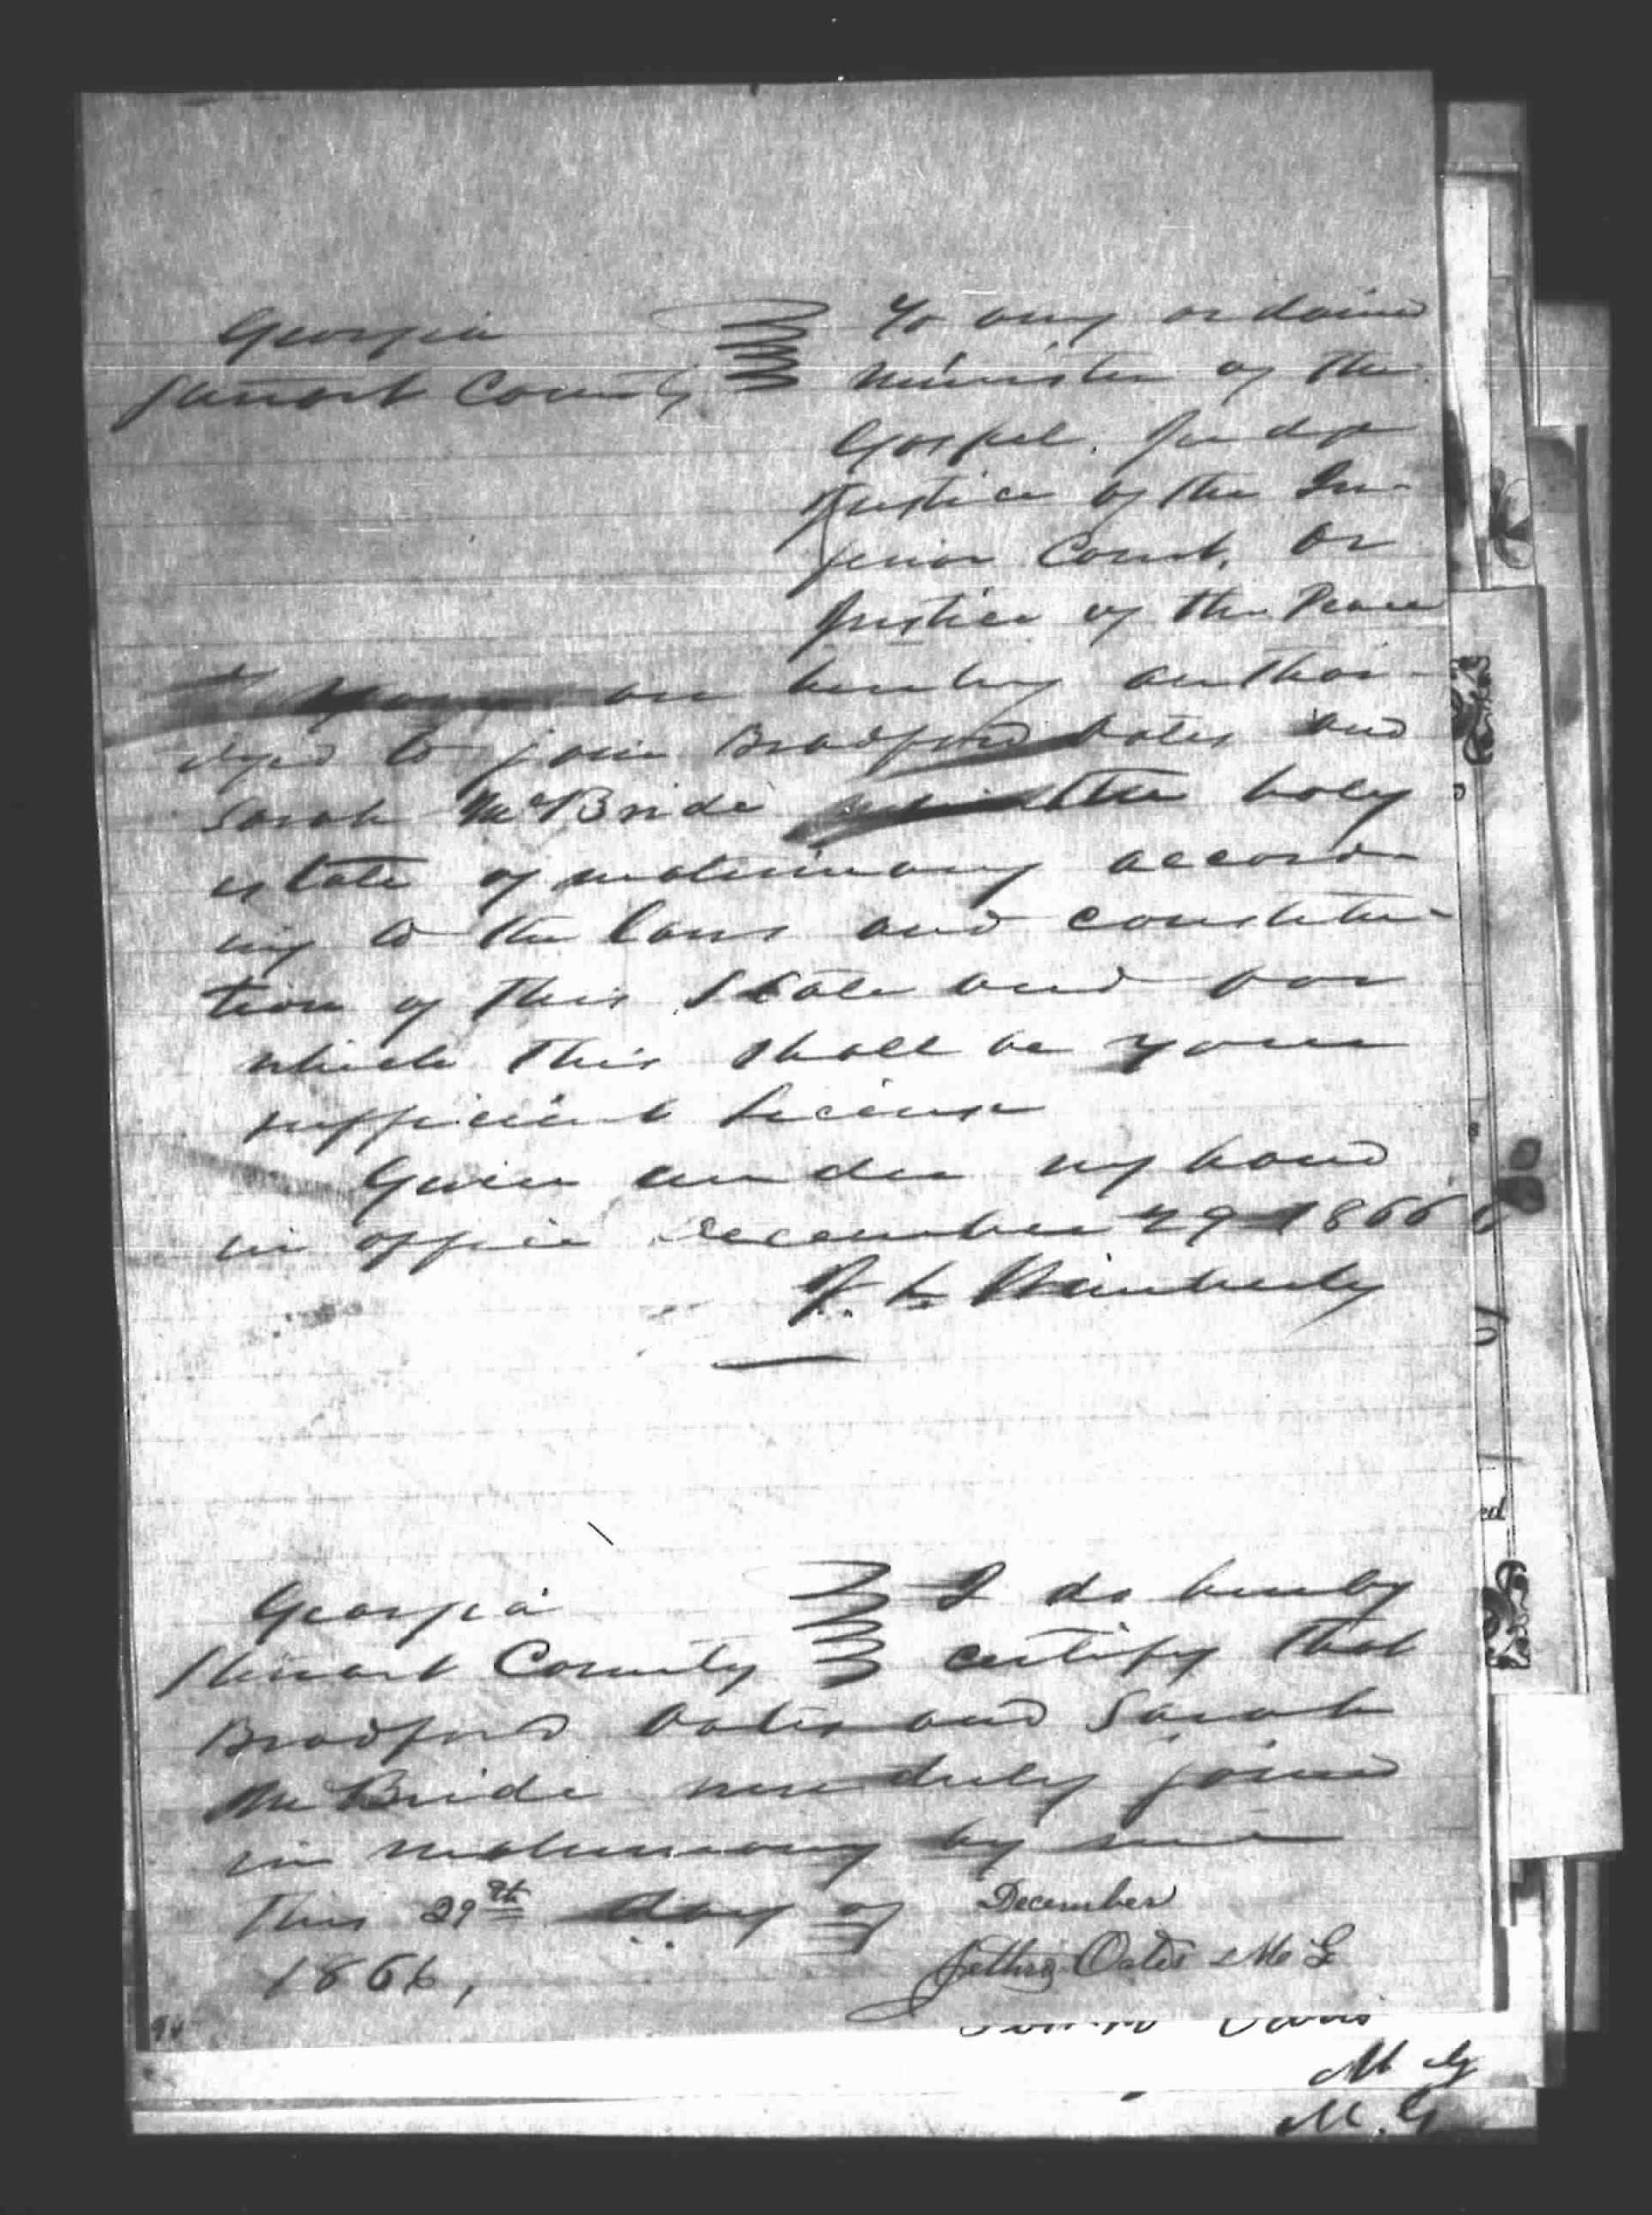 Georgia To any ordained
Stewart County Minister of the
Gospel. Judge
Justice of the In-
ferior Court, or
Justice of the Peace
You are hereby author-
ized to join Bradford Oates and
Sarah McBride in the holy
estate of matrimony accord-
ing to the laws and constitu-
tion of this State and for
which this shall be your
sufficient License
Given under my hand
in office December 29 1866
J. L. Wimberly
Georgia I do hereby
Stewart County certify that
Bradford Oates and Sarah
McBride were duly joined
in matrimony by me
This 29th day of December
1866,
Jethro Oates M G
M G
M. G
ed